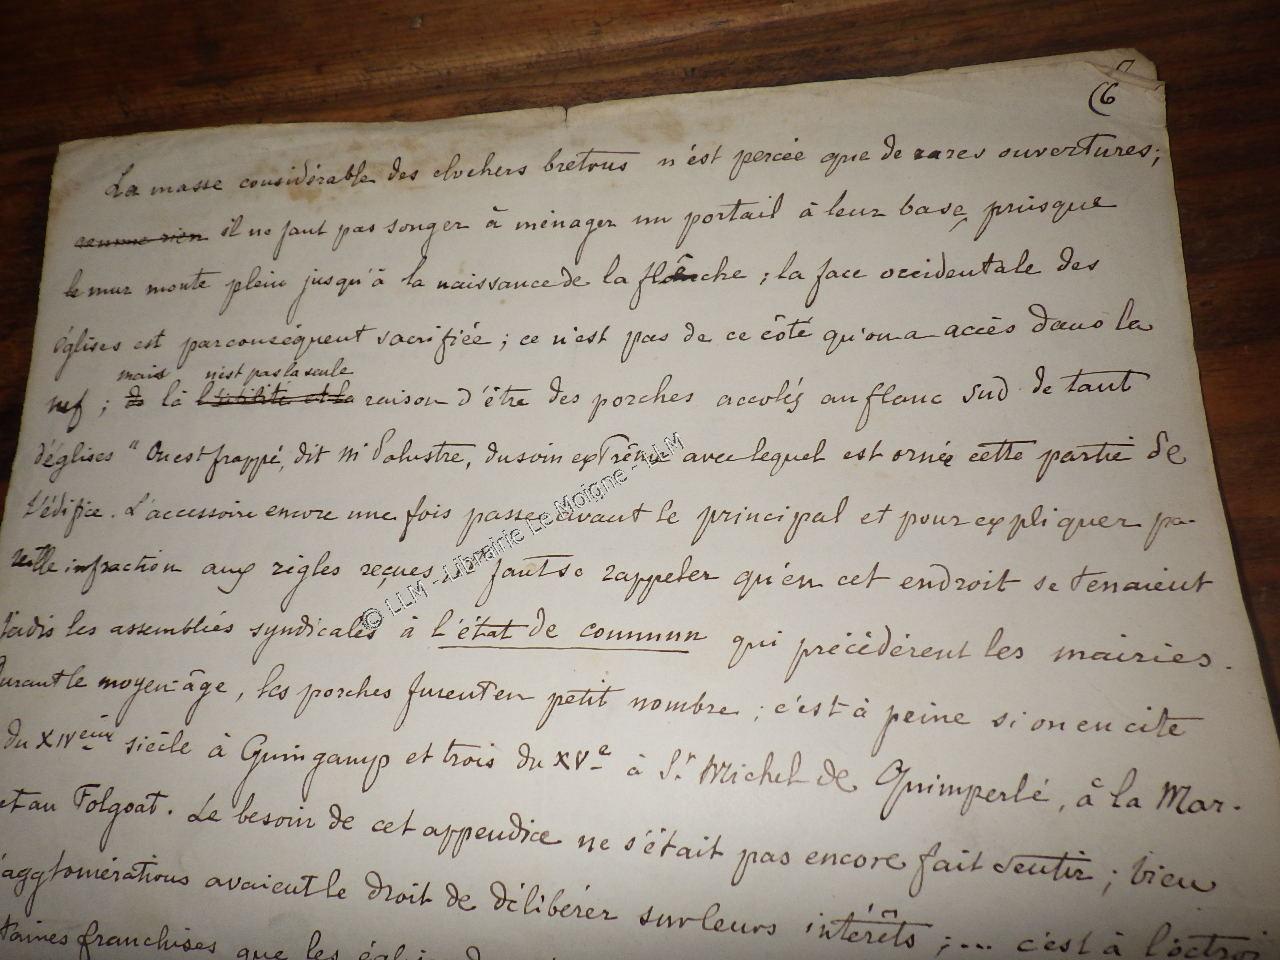 7
(6
La masse considérable des clochers bretons n'est percée que de rares ouvertures;
comme rien il ne faut pas songer à ménager un portail à leur base, puisque
le mur monte plein jusqu'à la naissance de la flêche ; la face occidentale des
églises est par conséquent sacrifiée ; ce n'est pas de ce côté qu'on a accès dans la
mais n'est pas la seule
nef ; là raison d'être des porches accolés au flanc sud de tant
d'églises " On est frappé, dit Mr Palustre, du soin extrême avec lequel est ornée cette partie de
l'édifice. L'accessoire encore une fois passe avant le principal et pour expliquer pa-
reille infraction aux règles reçues il faut se rappeler qu'en cet endroit se tenaient
jadis les assemblées syndicales à l'état de commun qui précédèrent les mairies.
Durant le moyen-âge, les porches furent en petit nombre ; c'est à peine si on en cite
du XIVème siècle à Guingamp et trois du XVe à St Michel de Quimperlé, à la Mar-
et au Folgoat. Le besoin de cet appendice ne s'était pas encore fait sentir ; bien
agglomérations avaient le droit de délibérer sur leurs intérêts ;... c'est à l'octroi
taines franchises que les
© LLM - Librairie Le Moigne - LLM